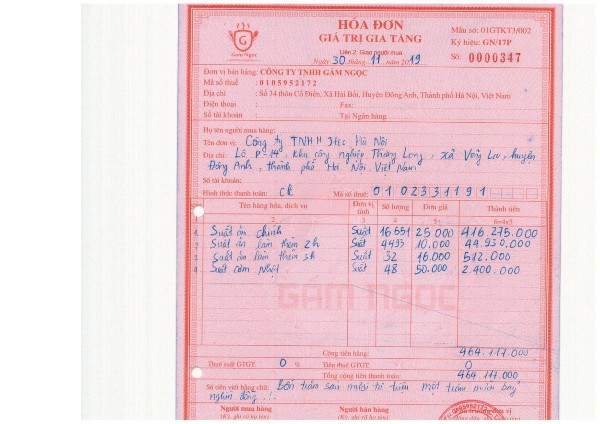 Gấm Ngọc
HÓA ĐƠN
GIÁ TRỊ GIA TĂNG
Liên 2: Giao người mua
Ngày 30 tháng 11 năm 2019
Mẫu số: 01GTKT3/002
Ký hiệu: GN/17P
Số: 0000347
Đơn vị bán hàng: CÔNG TY TNHH GẤM NGỌC
Mã số thuế : 0105952172
Địa chỉ : Số 34 thôn Cổ Điển, Xã Hải Bối, Huyện Đông Anh, Thành phố Hà Nội, Việt Nam
Điện thoại : Fax:
Số tài khoản : Tại Ngân hàng:
Họ tên người mua hàng:
Tên đơn vị: Công ty TNHH Hà Nội
Địa chỉ: Lô P-14, Khu công nghiệp Thăng Long, xã Võng La, huyện
Đông Anh, thành phố Hà Nội, Việt Nam
Số tài khoản:
Hình thức thanh toán: ck Mã số thuế: 0102331191
STT Tên hàng hóa, dịch vụ Đơn vị tính Số lượng Đơn giá Thành tiền
1 2 3 4 5 6=4x5
1 Suất ăn chính Suất 16651 25.000 416.275.000
2 Suất ăn làm thêm 2h Suất 4493 10.000 44.930.000
3 Suất ăn làm thêm 3h Suất 32 16.000 512.000
4 Suất cơm Nhật Suất 48 50.000 2.400.000
GAM NGOC
Cộng tiền hàng: 464.117.000
Thuế suất GTGT: 0 % Tiền thuế GTGT: 0
Tổng cộng tiền thanh toán: 464.117.000
Số tiền viết bằng chữ: Bốn trăm sáu mươi tư triệu một trăm mười bảy
nghìn đồng ./.
Người mua hàng Người bán hàng Thủ trưởng đơn vị
(Ký, ghi rõ họ tên) (Ký, ghi rõ họ tên)